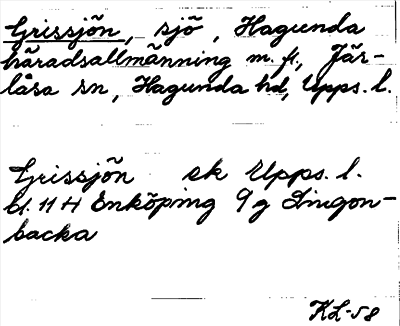 Grissjön, sjö, Hagunda
häradsallmänning m. fl., Jär-
låsa sn, Hagunda hd, Upps. l.
Grissjön ek Upps. l.
bl. 11 H Enköping 9 g Lingon-
backa
KL-58